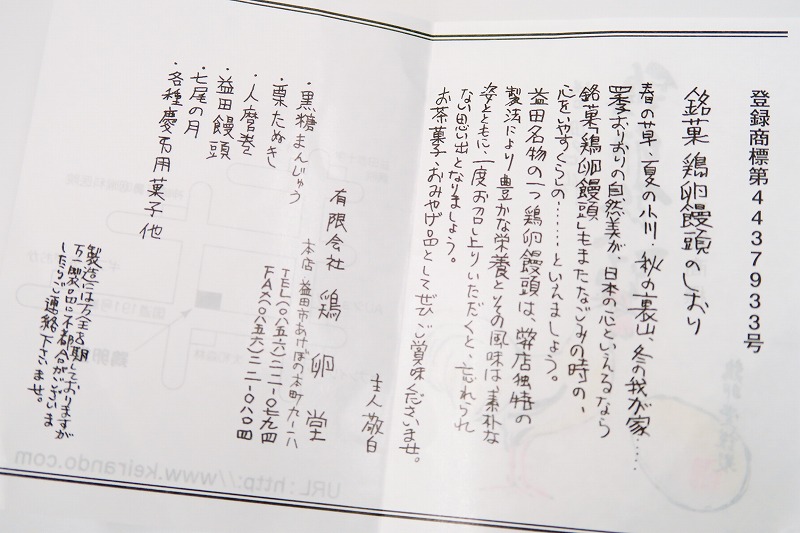 登録商標第4437933号
銘菓 鶏卵饅頭のしおり
春の草、夏の小川、秋の裏山、冬の我が家……
四季おりおりの自然美が、日本の心といえるなら
銘菓「鶏卵饅頭」もまたなごみの時の、
心をいやすくらしの……といえましょう。
益田名物の一つ鶏卵饅頭は、弊店独特の
製法により豊かな栄養とその風味は、素朴な
姿とともに、一度お召し上りいただくと、忘れられ
ない思い出となりましょう。
お茶菓子、おみやげ品としてぜひご賞味くださいませ。
主人敬白
有限会社 鶏卵堂
本店・益田市あけぼの本町九ー八
TEL(〇八五六)二二ー〇七九四
FAX(〇八五六)二二ー〇八〇四
・黒糖まんじゅう
・栗たぬき
・人麿巻
・益田饅頭
・七尾の月
・各種慶弔用菓子他
製造には万全を期しておりますが
万一製品に不都合がございま
したらご連絡下さいませ。
URL:http://www.keirando.com